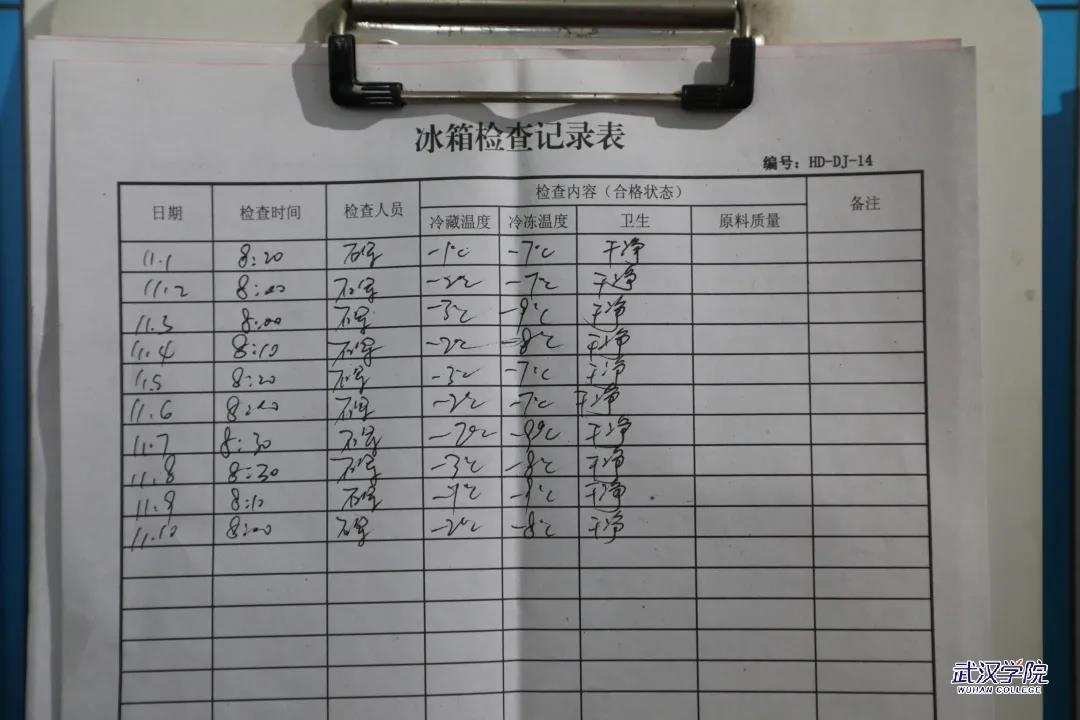 冰箱检查记录表
编号：HD-DJ-14
日期 检查时间 检查人员 检查内容（合格状态） 备注
冷藏温度 冷冻温度 卫生 原料质量
11.1 8:20 -1℃ -7℃ 干净
11.2 8:00 -2℃ -7℃ 干净
11.3 8:00 -3℃ -9℃ 干净
11.4 8:10 -2℃ -8℃ 干净
11.5 8:20 -3℃ -7℃ 干净
11.6 -2℃ -7℃ 干净
11.7 8:30 -2℃ -9℃ 干净
11.8 8:30 -3℃ -8℃ 干净
11.9 8:10 干净
11.10 8:00 -2℃ -8℃ 干净
武汉学院
WUHAN COLLEGE